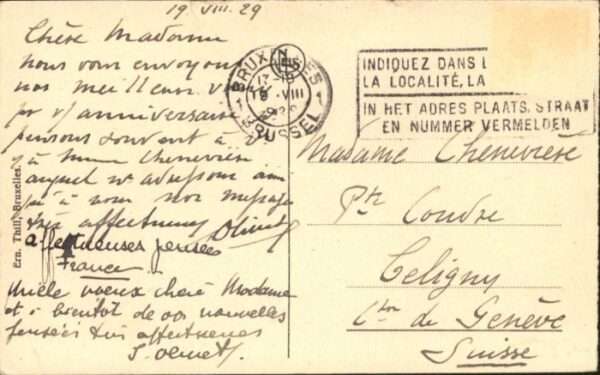 19 VIII. 29
Chère Madame
nous vous envoyons
nos meilleurs v
pr v/ anniversaire
pensons souvent à v
à
auquel ns adressons ain
si qu'à vous nos message
très affectueux Olivet
affectueuses pensées
France
Mille voeux chère Madame
et à bientôt de vos nouvelles
pensées très affectueuses
S. Olivet
Ern. Thill, Bruxelles.
BRUXELLES
17-18
19 VIII
1929
BRUSSEL
1 1
INDIQUEZ DANS L
LA LOCALITÉ, LA
IN HET ADRES PLAATS, STRAAT
EN NUMMER VERMELDEN
Madame Chenevière
Pte Coudre
Celigny
Cton de Genève
Suisse